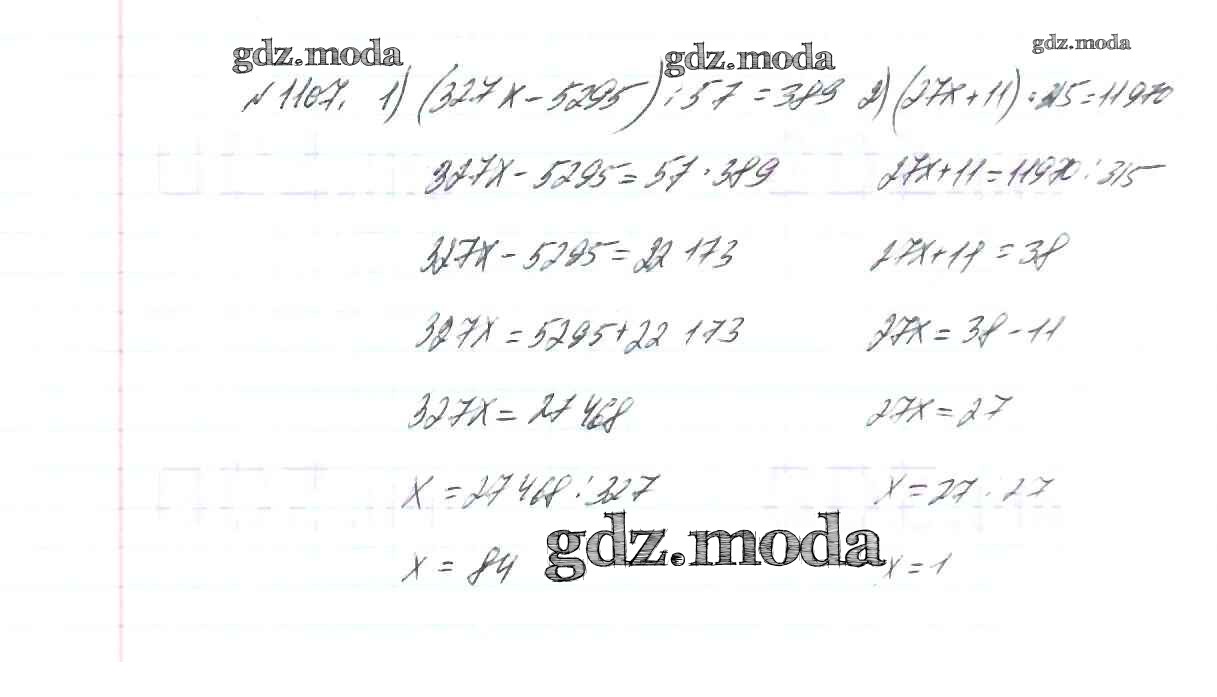 gdz.moda gdz.moda gdz.moda
№1107. 1) (327x - 5295) : 57 = 389 2) (27x + 11) · 315 = 11970
327x - 5295 = 57 · 389 27x + 11 = 11970 : 315
327x - 5295 = 22 173 27x + 11 = 38
327x = 5295 + 22 173 27x = 38 - 11
327x = 27 468 27x = 27
x = 27 468 : 327 x = 27 : 27
gdz.moda
x = 84 x = 1